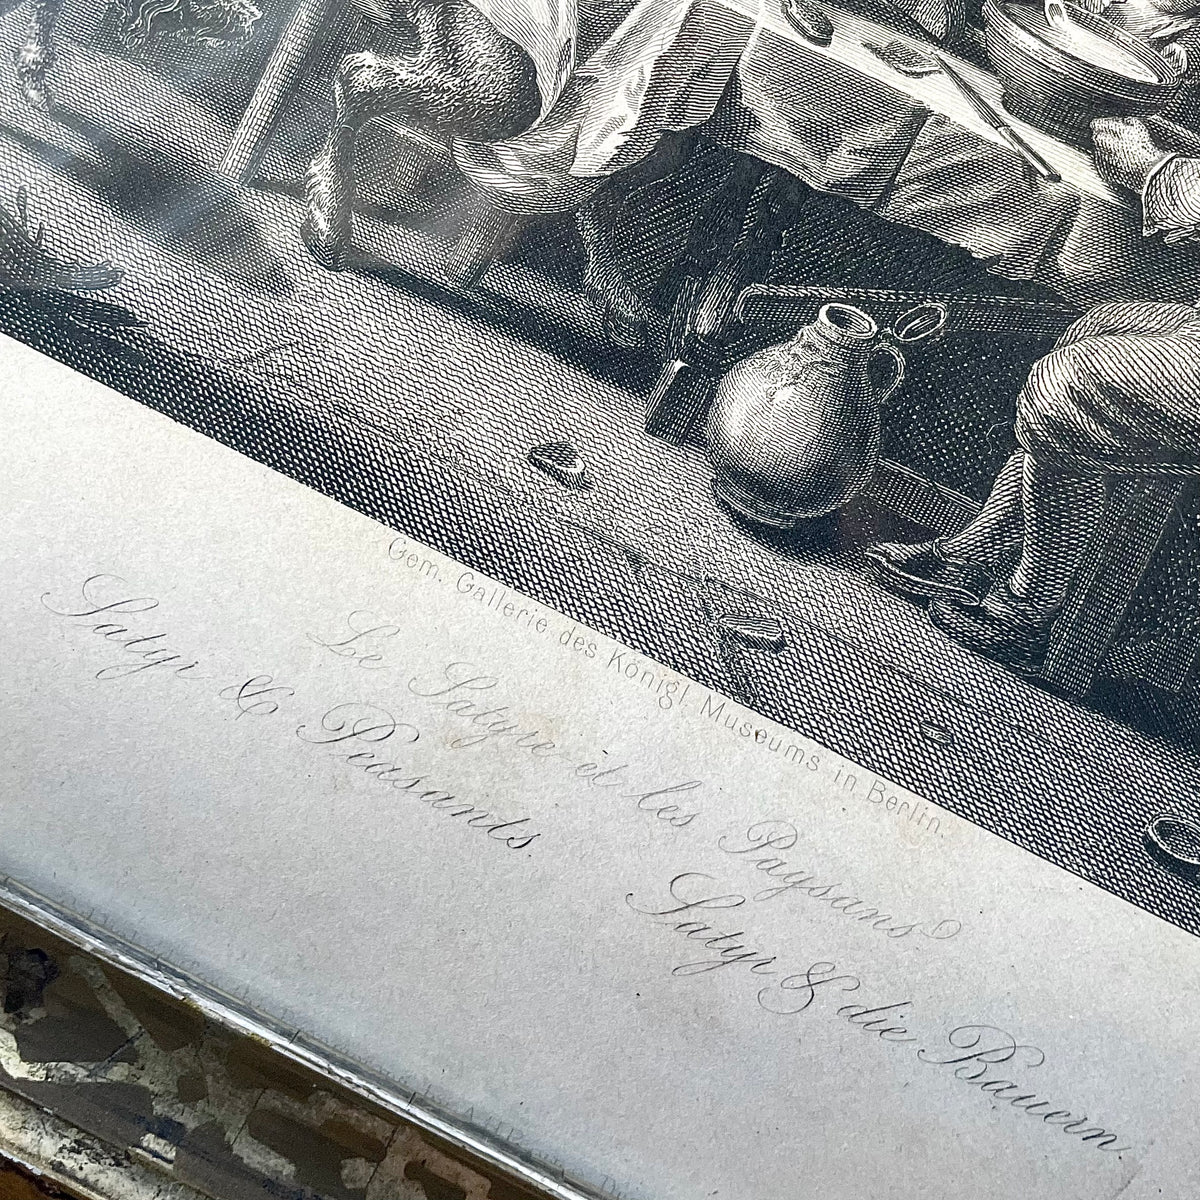 Gem. Gallerie des Königl. Museums in Berlin.
Le Satyre et les Paysans
Satyr & Peasants.
Satyr & die Bauern.